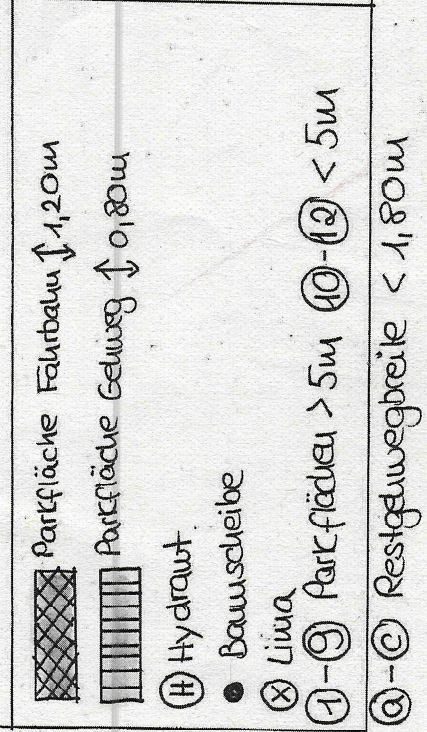 Parkfläche Fahrbahn ↕ 1,20m
Parkfläche Gehweg ↕ 0,80m
H Hydrant
Baumscheibe
X Lima
1 - 9 Parkflächen > 5m 10 - 12 < 5m
a - c Restgehwegbreite < 1,80m